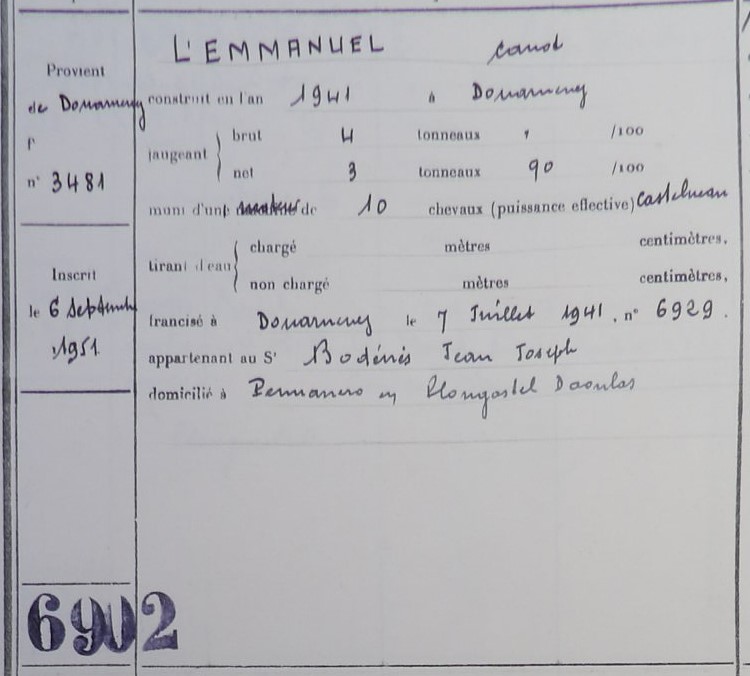 L'EMMANUEL canot
Provient
de Douarnenez
f°
n° 3481
construit en l'an 1941 à Douarnenez
jaugeant brut 4 tonneaux , /100
net 3 tonneaux 90 /100
muni d'un moteur de 10 chevaux (puissance effective) Castelnau
tirant d'eau chargé mètres centimètres.
non chargé mètres centimètres.
Inscrit
le 6 Septembre
1951
francisé à Douarnenez le 7 Juillet 1941, n° 6929.
appartenant au Sr Bodénès Jean Joseph
domicilié à en Plougastel Daoulas
6902